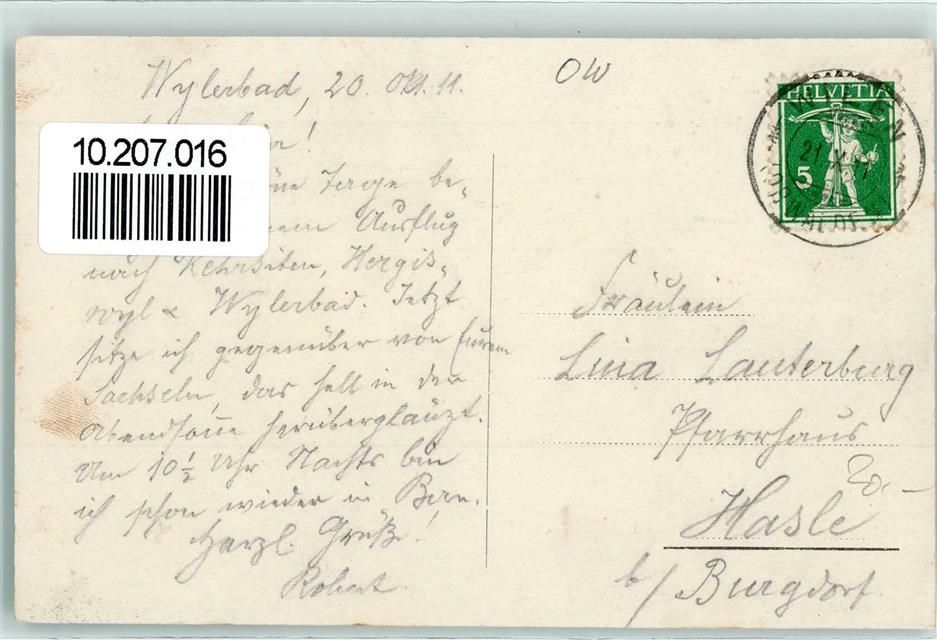 Wylerbad, 20. Okt. 11.
OW
HELVETIA
5
10.207.016
Tage be-
Ausflug
nach Kehrsiten, Hergis-
wyl & Wylerbad. Jetzt
sitze ich gegenüber von Eurem
Sachseln, das hell in der
Abendsonne herüberglänzt.
Um 10½ Uhr Nachts bin
ich schon wieder in Bern.
Herzl. Grüße!
Robert.
Fräulein
Lina Lauterburg
Pfarrhaus
Hasle
20.-
b/ Burgdorf.